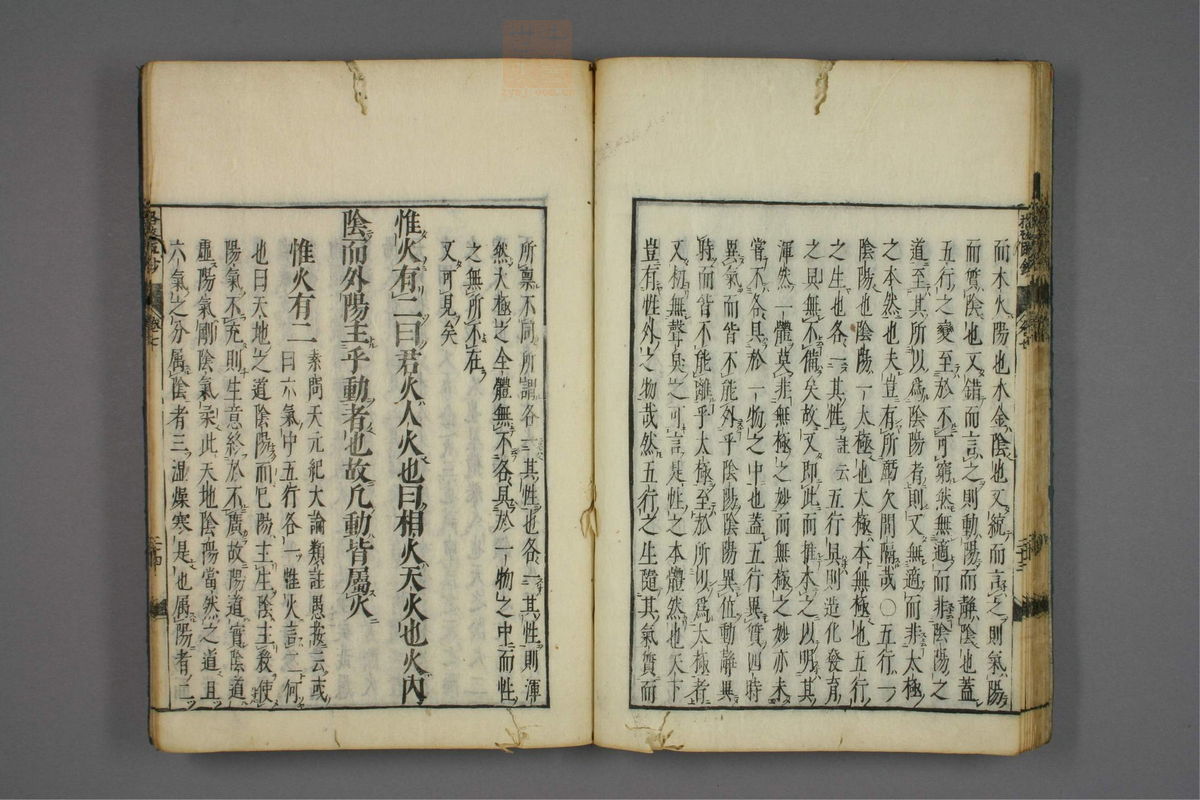 而木火陽也水金陰也又統而言之則氣陽
而質陰也又錯而言之則動陽而靜陰也蓋
五行之變至於不可窮然無適而非陰陽之
道至其所以爲陰陽者則又無適而非太極
之本然也夫豈有所虧欠間隔哉〇五行一
陰陽也陰陽一太極也太極本無極也五行
之生也各一其性註云五行具則造化發育
之具無不備矣故又即此而推本之以明其
渾然一體莫非無極之妙而無極之妙亦未
嘗不各具於一物之中也蓋五行異質四時
異氣而皆不能外乎陰陽陰陽異位動靜異
時而皆不能離乎太極至於所以爲太極者
又初無聲臭之可言是性之本體然也天下
豈有性外之物哉然五行之生隨其氣質而
所稟不同所謂各一其性也各一其性則渾
然太極之全體無不各具於一物之中而性
之無所不在
又可見矣
惟火有二曰君火人火也曰相火天火也火内
陰而外陽主乎動者也故凡動皆屬火
惟火有二 素問天元紀大論類註愚按云或
曰六氣中五行各一惟火言二何
也曰天地之道陰陽而已陽主生陰主殺使
陽氣不充則生意終於不廣故陽道實陰道
虛陽氣剛陰氣柔此天地陰陽當然之道且
六氣之分屬陰者三湿燥寒是也屬陽者二